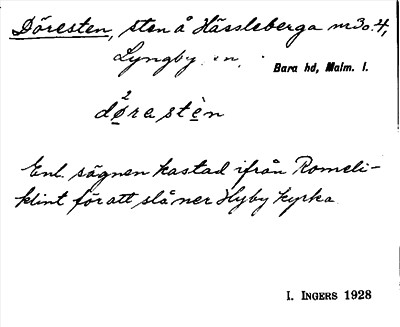 Döresten, sten å Hässleberga nr 3 o. 4,
Lyngby sn, Bara hd, Malm. l.
dø²ra stèn
Enl. sägnen kastad ifrån Romele-
klint för att slå ner Hyby kyrka
I. INGERS 1928